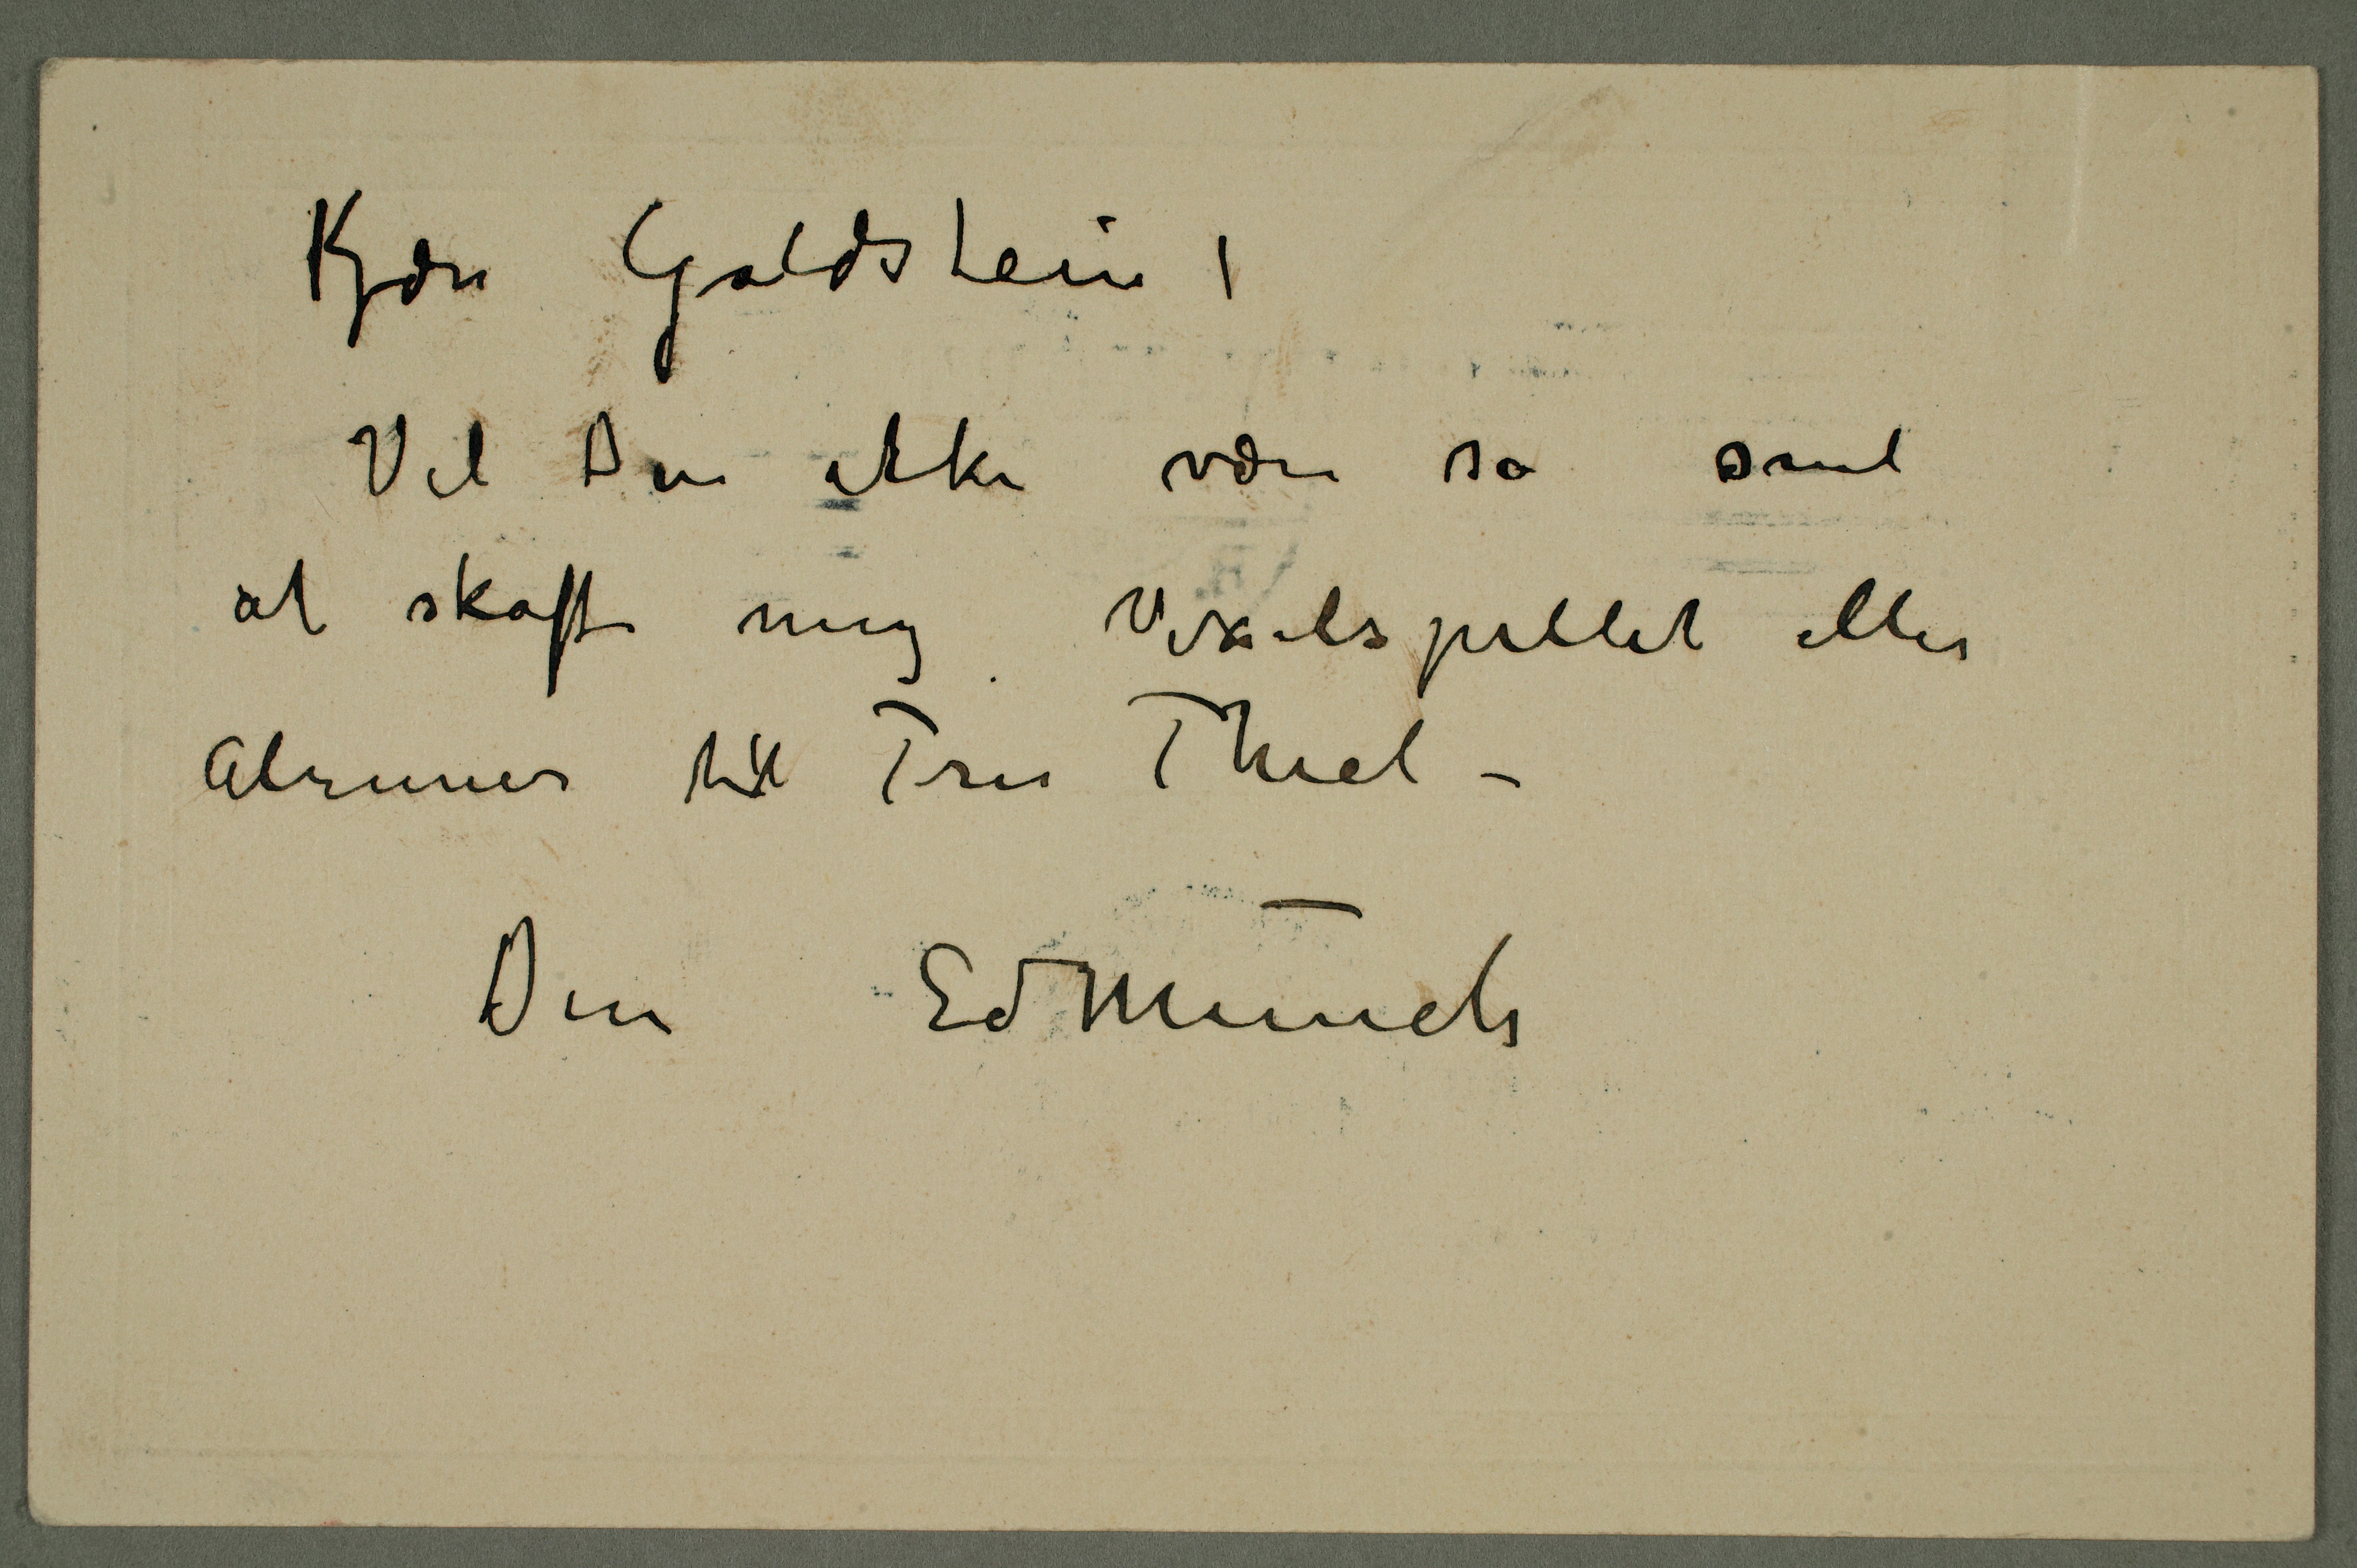 Kjære Goldstein!
Vil Du ikke være så snil
at skaffe mig Vexelspillet eller
Alruner till Fru Thiel –
Din EdMunch